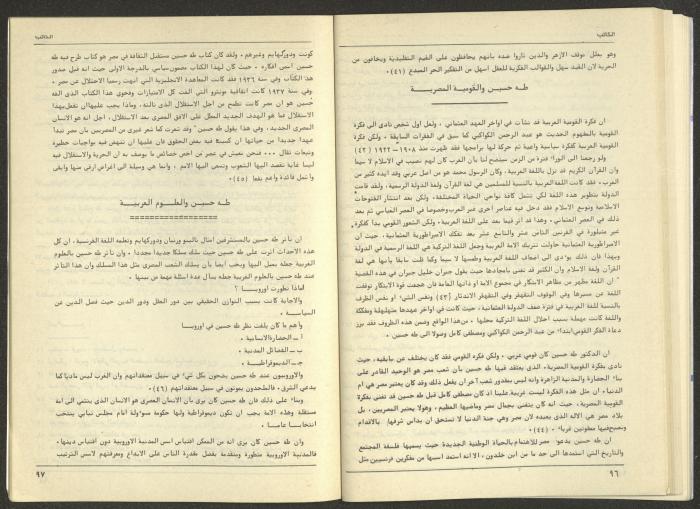 الكاتب
وهو يمثل موقف الازهر والذين تاروا ضده بأنهم يحافظون على القيم التقليدية ويخافون من
الحرية لان القيد سهل والقوالب الفكرية للعقل اسهل من التفكير الحر المبدع (٤١)٠
طه حسين والقومية المصريـــة
ان فكرة القومية العربية قد نشأت في اواخر العهد العثماني ، ولعل اول شخص نادى الى فكرة
القومية بالمفهوم الحديث هو عبد الرحمن الكواكبي كما سبق في الفقرات السابقة ٠ ولكن فكرة
القومية العربية كفكرة سياسية واعية ثم حركة لها برامجها فقد ظهرت منذ ١٩٠٨-١٩٢٢ (٤٢)
ولو رجعنا الى الوراء فترة من الزمن سيتضح لنا بأن العرب كان لهم نصيب في الاسلام لا سيما
وان القرآن الكريم قد نزل باللغة العربية، وكان الرسول محمد هو من اصل عربي وقد ايده كثير من
العرب ٠ فقد كانت اللغة العربية بالنسبة للمسلمين هي لغة القرآن ولغة الدولة الرسمية، ولقد قامت
الدولة بتطوير هذه اللغة لكي تشمل كافة نواحي الحياة المختلفة، ولكن بعد انتشار الفتوحات
الاسلامية وتوسع الاسلام فقد دخل فيه عناصر اخرى غير العرب وخصوصا في العصر العباسي ثم بعد
ذلك في العصر العثماني ٠ وهذا قد اثر فيما بعد على اللغة العربية، ولكن الشعور القومي بدأ كفكرة
غير متبلورة في القرنين الثامن عشر والتاسع عشر بعد تفكك الامبراطورية العثمانية، حيث ان
الامبراطورية العثمانية حاولت تتريك الامة العربية وجعل اللغة التركية هي اللغة الرسمية في الدولة
وبهذا فان ذلك يؤدي الى اضعاف اللغة العربية وطمسها لا سيما وكما قلت سابقا بأنها هي لغة
القرآن ولغة الاسلام وان الكثير قد تغنى بأمجادها حيث يقول جبران خليل جبران في هذه القضية
ان اللغة مظهر من مظاهر الابتكار في مجموع الامة او ذاتها العامة فان هجعت قوة الابتكار توقفت
اللغة عن مسيرها وفي الوقوف التقهقر وفي التقهقر الاندثار (٤٣) ونفس الشيء او نفس الظرف
بالنسبة للغة العربية في فترة ضعف الدولة العثمانية، حيث كانت في اواخر عهدها متهلهلة ومفككة
واللغة كانت مهملة بسبب احلال اللغة التركية محلها ٠ من هذا الواقع وضمن هذه الظروف فقد برز
دعاة الفكر القومي ابتداء من عبد الرحمن الكواكبي ومصطفى كامل وصولا الى طه حسين ٠
ان الدكتور طه حسين كان قومي عربي ٠ ولكن فكره القومي فقد كان يختلف عن سابقيه، حيث
نادى بفكرة القومية المصرية، الذي يعتقد فيها طه حسين بأن شعب مصر هو الوحيد القادر على
بناء الحضارة والمدنية الزاهرة وانه ليس بمقدور شعب آخر ان يفعل ذلك وقد كان يعتبر مصر هي ام
الدنيا، ان مثل هذه الفكرة ليست غريبة علينا اذ كان مصطفى كامل قبل طه حسين قد تغنى بفكرة
القومية المصرية، حيث انه كان يتغنى بجمال مصر وماضيها العظيم، وهؤلا يعتبر المصريين ، بل
بلاد مصر هي الاله الذى يعبده لان مصر وهي جنة الدنيا لا تستحق ان يداس شرفها بالاقدام
ويصبح فيها مفوتين غرباء" ٠ (٤٤)
ان طه حسين يدعو: مصر للاهتمام بالحياة الوطنية الجديدة حيث يسميها فلسفة المجتمع
والتاريخ التي استمدها الى حد ما من ابن خلدون، الا انه استمد اسسها من مفكرين فرنسيين مثل
٩٦
الكاتب
كونت ودوركهايم وغيرهم ٠ ولقد كان كتاب طه حسين مستقبل الثقافة في مصر هو كتاب طرح فيه طه
حسين اسس افكاره ٠ حيث كان لهذا الكتاب مضمون سياسي بالدرجة الاولى حيث انه قبل صدور
هذا الكتاب وفي سنة ١٩٣٦ فقد كانت المعاهدة الانجليزية التي انهت رسميا الاحتلال عن مصر ٠
وفي سنة ١٩٣٧ كانت اتفاقية مونترو التي الغت كل الامتيازات وفحوى هذا الكتاب الذى الفه
حسين هو ان مصر كانت تطمح من اجل الاستقلال الذى نالته، وماذا يجب عليها ان تفعل بهذا
الاستقلال فما هو الهدف الجديد المطل على الافق المصري بعد الاستقلال ، اجل انه هو الانسان
المصرى الجديد ، وفي هذا يقول طه حسين" وقد شعرت كما شعر غيرى من المصريين بان مصر تبدأ
عهدا جديدا من حياتها ان كسبت فيه بعض الحقوق فان عليها ان تنهض فيه بواجبات خطيرة
وتبعات ثقال ٠٠٠ فنحن نعيش في عصر من اخص خصائص ما يوصف به ان الحرية والاستقلال فيه
ليسا غاية تقصد اليها الشعوب وتسعى اليها الامم ٠ وانما هي وسيلة الى اغراض ارقى منها وابقى
واشمل فائدة واعم نفعا" (٤٥)٠
طه حسين والعلوم الغربيـــة
==================
ان تأثر طه حسين بالمستشرقين امثال نالينو ورينان ودوركهايم وتعلمه اللغة الفرنسية، ان كل
هذه الاحداث اثرت على طه حسين حيث سلك مسلكا جديدا مجددا ٠ وان تأثر طه حسين بالعلوم
الغربية جعله يميل اليها ويحب ايضا بأن يسلك الشعب المصري مثل هذا السلك وان هذا التأثر
عند طه حسين بالعلوم الغربية جعله يسأل عدة اسئلة مهمة من بينها ٠
لماذا تطورت اوروبــــا ؟
والاجابة كانت بسبب التوازن الحقيقي بين دور العقل ودور الدين حيث فصل الدين عن
السياســة ٠
واهم ما كان يلفت نظر طه حسين في اوروبــا
أ ــ الحضارة الانسانية ٠
ب ــ الفضائل المدنية ٠
جـ ــ الديموقراطيـــة ٠
والاوروبيون عند طه حسين يضحون بكل شيء في سبيل معتقداتهم وان الغرب ليس ماديا كما
يدعي الشرق ٠ فالملحدون يموتون في سبيل معتقداتهم (٤٦)٠
وبناء على ذلك فان طه حسين كان يرى بأن الانسان العصرى هو الانسان الذى ينتمي الى امة
مستقلة وهذه الامة يجب ان تكون ديموقراطية ولها حكومة مسؤولة امام مجلس نيابي ينتخب
انتخابــا عامــا ٠
وان طه حسين كان يرى انه من الممكن اقتباس اسس المدنية الاوروبية دون اقتباس دينها ٠
فالمدنية الاوروبية متطورة ومتقدمة بفضل مقدرة الناس على الابداع ومعرفتهم لاسس الترتيب
٩٧